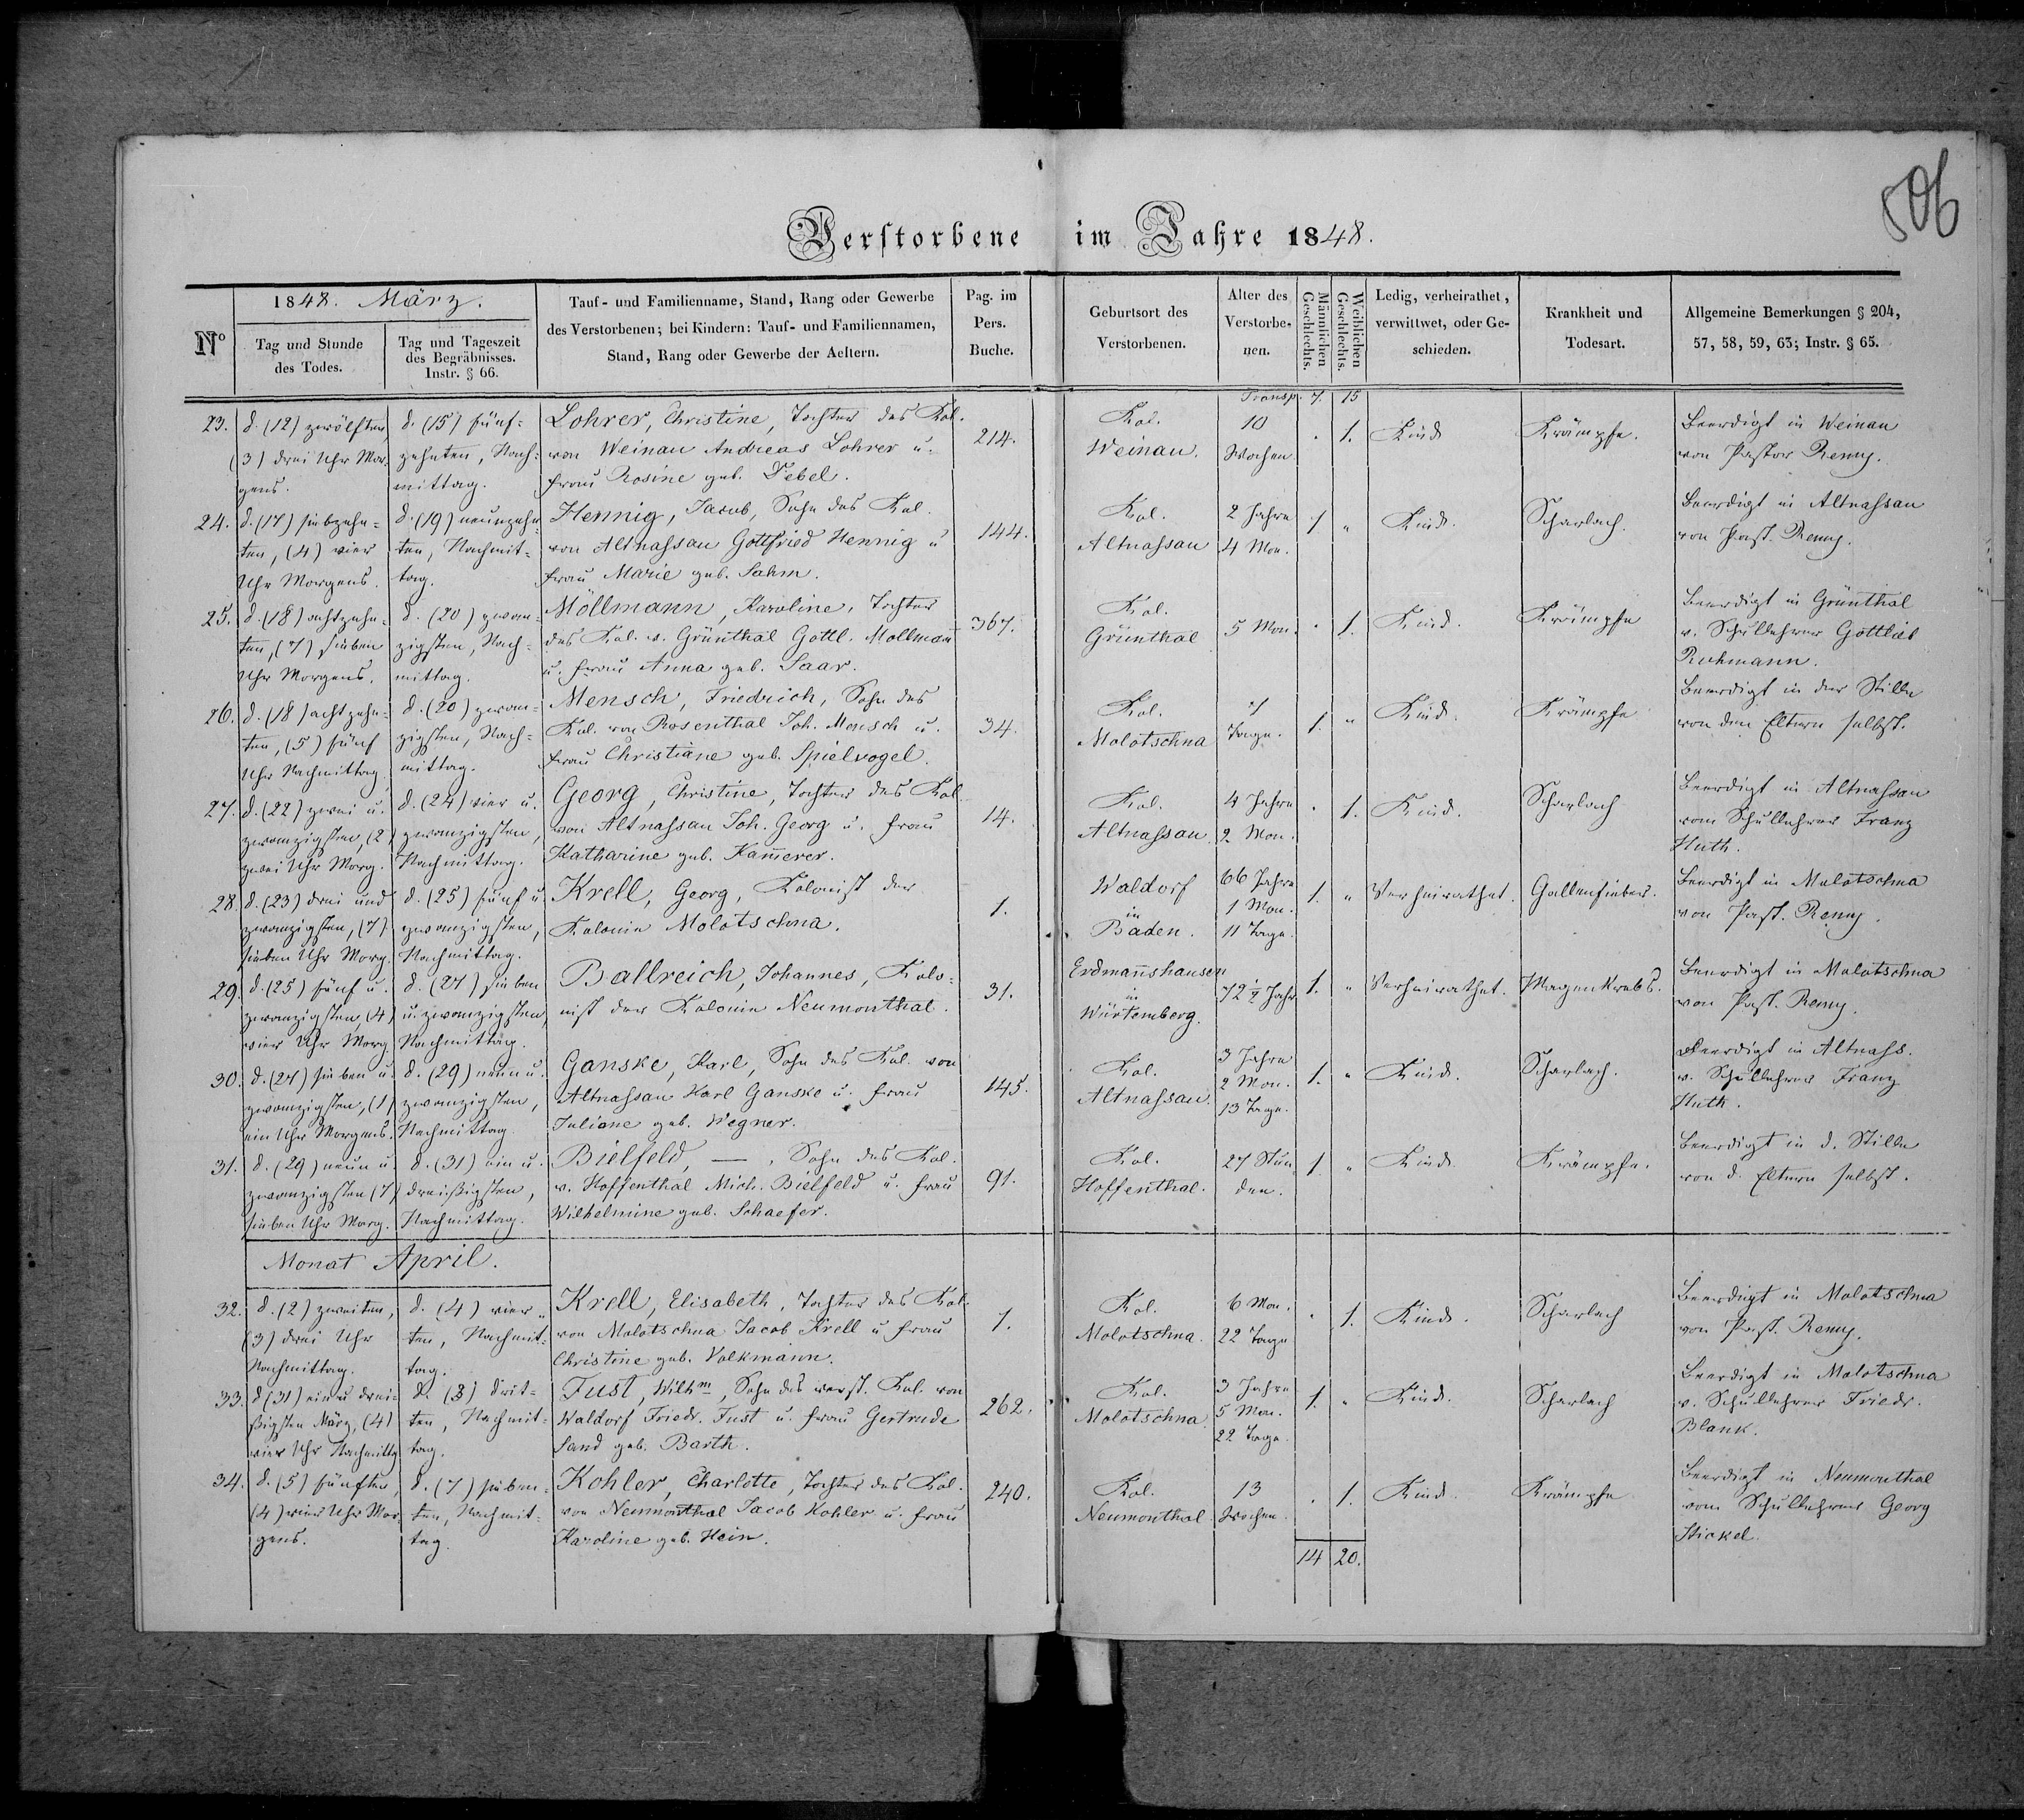 506
Verstorbene im Jahre 1848.
Nº
1848. März.
Tag und Stunde
des Todes.
Tag und Tageszeit
des Begräbnisses.
Instr. § 66.
Tauf- und Familienname, Stand, Rang oder Gewerbe
des Verstorbenen; bei Kindern: Tauf- und Familiennamen,
Stand, Rang oder Gewerbe der Aeltern.
Pag. im
Pers.
Buche.
Geburtsort des
Verstorbenen.
Alter des
Verstorbe-
nen.
Männlichen
Geschlechts.
Weiblichen
Geschlechts.
Ledig, verheirathet,
verwittwet, oder Ge-
schieden.
Krankheit und
Todesart.
Allgemeine Bemerkungen § 204,
57, 58, 59, 63; Instr. § 65.
Transp. 7. 15
23.
d. (12) zwölften,
(3) drei Uhr Mor-
gens.
d. (15) fünf-
zehnten, Nach-
mittag.
Lohrer, Christine, Tochter des Kol.
von Weinau Andreas Lohrer u.
Frau Rosine geb. Febel.
214.
Kol.
Weinau.
10
Wochen
. 1.
Kind
Krämpfe.
Beerdigt in Weinau
von Pastor Remy.
24.
d. (17) siebzehn-
ten, (4) vier
Uhr Morgens.
d. (19) neunzehn-
ten, Nachmit-
tag.
Hennig, Jacob, Sohn des Kol.
von Altnassau Gottfried Hennig u
Frau Marie geb. Sahm.
144.
Kol.
Altnassau
2 Jahre
4 Mon.
1 "
Kind.
Scharlach.
Beerdigt in Altnassau
von Past. Remy.
25.
d. (18) achtzehn-
ten, (7) sieben
Uhr Morgens.
d. (20) zwan-
zigsten, Nach-
mittag.
Möllmann, Karoline, Tochter
des Kol. v. Grünthal Gottl. Mollmann
u. Frau Anna geb. Saar.
367.
Kol.
Grünthal
5 Mon.
. 1.
Kind.
Krämpfe
Beerdigt in Grünthal
v. Schullehrer Gottlieb
Ruhmann.
26.
d. (18) achtzehn-
ten, (5) fünf
Uhr Nachmittag
d. (20) zwan-
zigsten, Nach-
mittag.
Mensch, Friedrich, Sohn des
Kol. von Rosenthal Joh. Mensch u.
Frau Christiane geb. Spielvogel.
34.
Kol.
Molotschna
7
Tage.
1. "
Kind.
Krämpfe
Beerdigt in der Stille
von den Eltern selbst.
27.
d. (22) zwei u.
zwanzigsten, (2
zwei Uhr Morg.
d. (24) vier u.
zwanzigsten,
Nachmittag.
Georg, Christine, Tochter des Kol
von Altnassau Joh. Georg u. Frau
Katharine geb. Kam̄erer.
14.
Kol.
Altnassau
4 Jahre
2 Mon.
. 1.
Kind.
Scharlach
Beerdigt in Altnassau
vom Schullehrer Franz
Huth.
28.
d. (23) drei und
zwanzigsten, (7)
sieben Uhr Morg.
d. (25) fünf u
zwanzigsten,
Nachmittag.
Krell, Georg, Kolonist der
Kolonie Molotschna.
1.
Waldorf
in
Baden.
66 Jahre
1 Mon.
11 Tage.
1. "
Verheirathet.
Gallenfieber.
Beerdigt in Molotschna
von Past. Remy.
29.
d. (25) fünf u.
zwanzigsten, (4)
vier Uhr Morg.
d. (27) sieben
u. zwanzigsten,
Nachmittag.
Ballreich, Johannes, Kolo-
nist der Kolonie Neumonthal.
31.
Erdman̄shausen
in
Würtemberg.
72 1/2 Jahr
1. "
Verheirathet.
Magenkrebs.
Beerdigt in Molotschna
von Past. Remy.
30.
d. (27) sieben u.
zwanzigsten, (1)
ein Uhr Morgens.
d. (29) neun u.
zwanzigsten,
Nachmittag.
Ganske, Karl, Sohn des Kol. von
Altnassau Karl Ganske u. Frau
Juliane geb. Wegner.
145.
Kol.
Altnassau.
3 Jahre
2 Mon.
13 Tage.
1. "
Kind.
Scharlach.
Beerdigt in Altnass.
v. Schullehrer Franz
Huth.
31.
d. (29) neun u
zwanzigsten (7)
sieben Uhr Morg.
d. (31) ein u.
dreißigsten,
Nachmittag.
Bielfeld, — , Sohn des Kol.
v. Hoffenthal Mich. Bielfeld u. Frau
Wilhelmine geb. Schaefer.
91.
Kol.
Hoffenthal.
27 Stun
den.
1. "
Kind.
Krämpfe.
Beerdigt in d. Stille
von d. Eltern selbst.
Monat April.
32.
d. (2) zweiten,
(3) drei Uhr
Nachmittag.
d. (4) vier-
ten, Nachmit-
tag.
Krell, Elisabeth, Tochter des Kol.
von Molotschna Jacob Krell u Frau
Christine geb. Volkmann.
1.
Kol.
Molotschna.
6 Mon.
22 Tage
. 1.
Kind.
Scharlach
Beerdigt in Molotschna
von Past. Remy.
33.
d (31) ein u drei-
ßigsten März, (4)
vier Uhr Nachmittg
d. (3) drit-
ten, Nachmit-
tag.
Fust, Wilhm, Sohn des verst. Kol. von
Waldorf Friedr. Fust u. Frau Gertrude
Sand geb. Barth.
262.
Kol.
Molotschna
3 Jahre
5 Mon.
22 Tage.
1. "
Kind.
Scharlach
Beerdigt in Molotschna
v. Schullehrer Friedr.
Blank.
34.
d. (5) fünften,
(4) vier Uhr Mor
gens.
d. (7) sieben-
ten, Nachmit-
tag.
Kohler, Charlotte, Tochter des Kol.
von Neumonthal Jacob Kohler u. Frau
Karoline geb. Hein.
240.
Kol.
Neumonthal
13
Wochen.
. 1.
Kind.
Krämpfe
Beerdigt in Neumonthal
vom Schullehrer Georg
Stickel.
14 20.